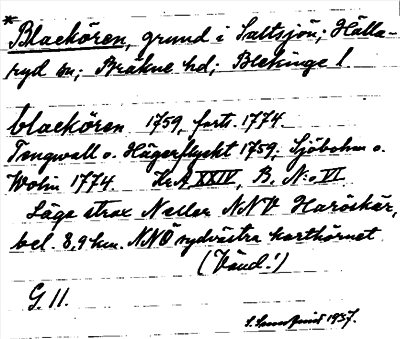 * Blackören, grund i Saltsjön; Hälla-
ryd sn; Bräkne hd; Blekinge l.
blackören 1759, forts. 1774.
Tengwall o. Hägerflyckt 1759; Sjöbohm o.
Wolin 1774. KrA XXIV, B. N:o VI
Läge strax N eller NNV Haröskär,
bel. 8,9 km. NNÖ sydvästra karthörnet
(Vänd!)
G. 11.
1937.